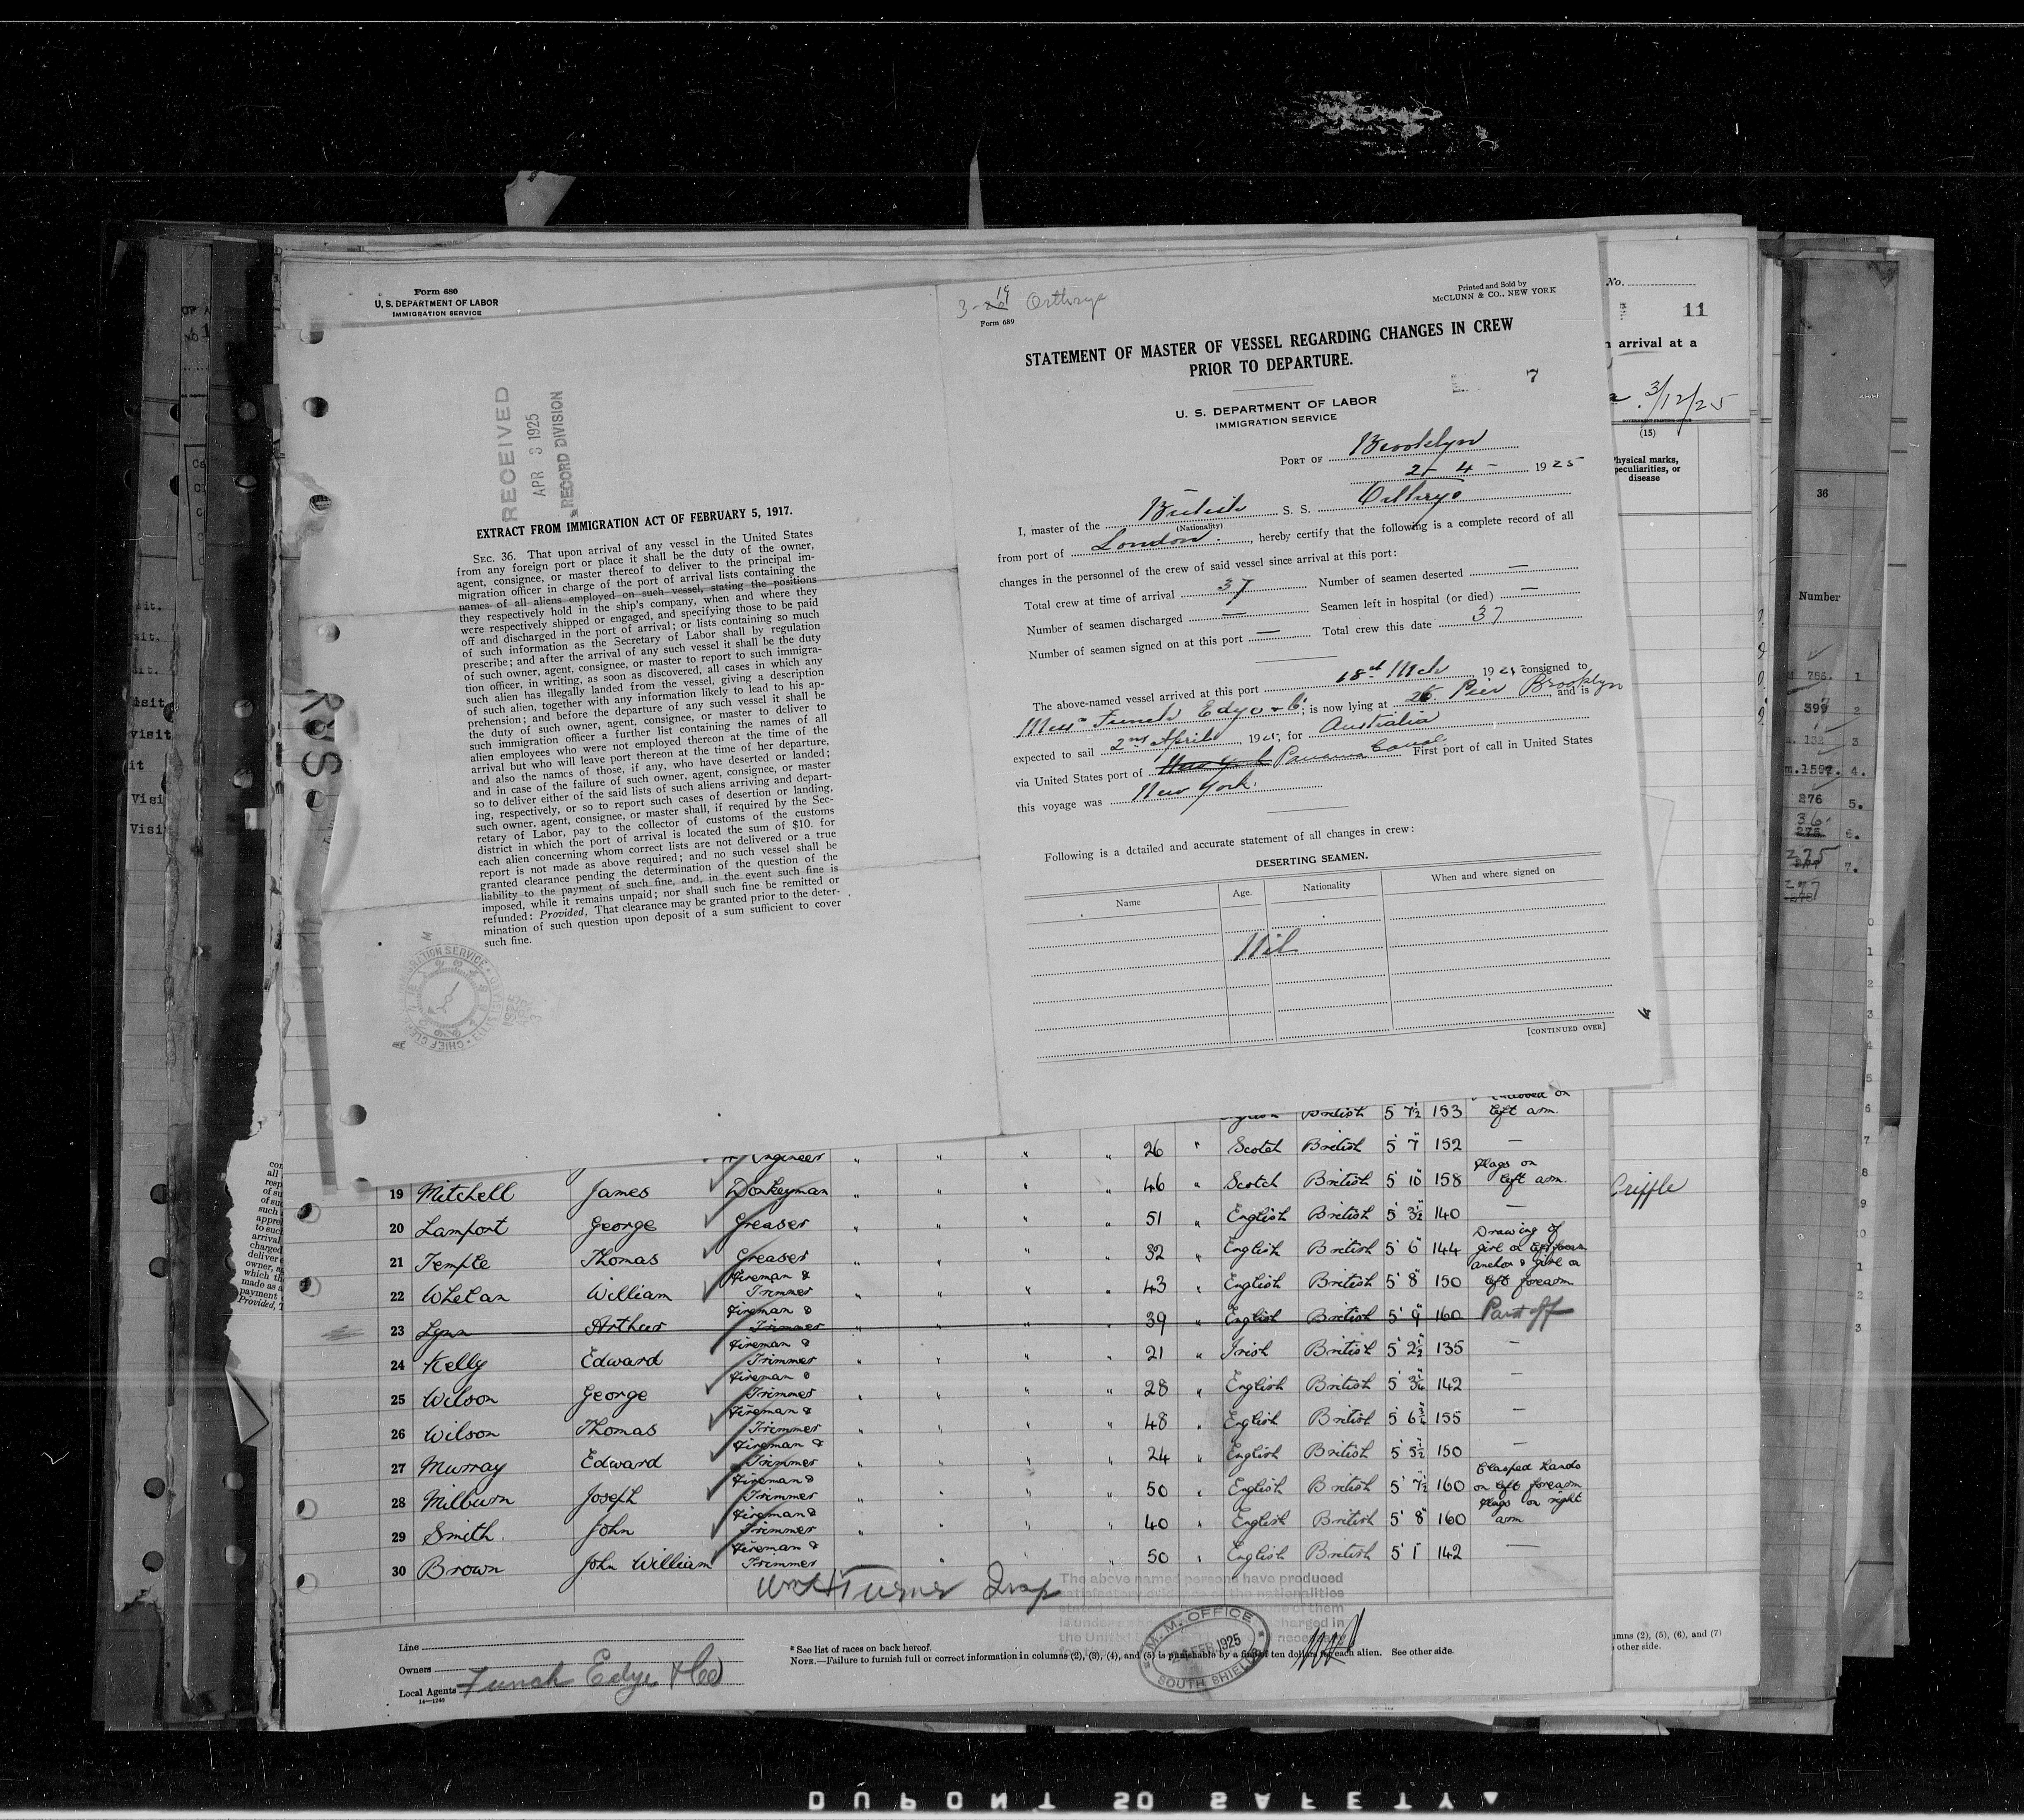 Form 680
U. S. DEPARTMENT OF LABOR
IMMIGRATION SERVICE
RECEIVED
APR 3 1925
RECORD DIVISION
EXTRACT FROM IMMIGRATION ACT OF FEBRUARY 5, 1917.
SEC. 36. That upon arrival of any vessel in the United States
from any foreign port or place it shall be the duty of the owner,
agent, consignee, or master thereof to deliver to the principal im-
migration officer in charge of the port of arrival lists containing the
names of all aliens employed on such vessel, stating the positions
they respectively hold in the ship's company, when and where they
were respectively shipped or engaged, and specifying those to be paid
off and discharged in the port of arrival; or lists containing so much
of such information as the Secretary of Labor shall by regulation
prescribe; and after the arrival of any such vessel it shall be the duty
of such owner, agent, consignee, or master to report to such immigra-
tion officer, in writing, as soon as discovered, all cases in which any
such alien has illegally landed from the vessel, giving a description
of such alien, together with any information likely to lead to his ap-
prehension; and before the departure of any such vessel it shall be
the duty of such owner, agent, consignee, or master to deliver to
such immigration officer a further list containing the names of all
alien employees who were not employed thereon at the time of the
arrival but who will leave port thereon at the time of her departure,
and also the names of those, if any, who have deserted or landed;
and in case of the failure of such owner, agent, consignee, or master
so to deliver either of the said lists of such aliens arriving and depart-
ing, respectively, or so to report such cases of desertion or landing,
such owner, agent, consignee, or master shall, if required by the Sec-
retary of Labor, pay to the collector of customs of the customs
district in which the port of arrival is located the sum of $10. for
each alien concerning whom correct lists are not delivered or a true
report is not made as above required; and no such vessel shall be
granted clearance pending the determination of the question of the
liability to the payment of such fine, and, in the event such fine is
imposed, while it remains unpaid; nor shall such fine be remitted or
refunded: Provided, That clearance may be granted prior to the deter-
mination of such question upon deposit of a sum sufficient to cover
such fine.
3-19 Orthrys
Form 689
Printed and Sold by
McCLUNN & CO., NEW YORK
STATEMENT OF MASTER OF VESSEL REGARDING CHANGES IN CREW
PRIOR TO DEPARTURE.
7
U. S. DEPARTMENT OF LABOR
IMMIGRATION SERVICE
PORT OF Brooklyn
2 - 4 - 1925
I, master of the British S. S. Orthrys
(Nationality)
from port of London., hereby certify that the following is a complete record of all
changes in the personnel of the crew of said vessel since arrival at this port:
Total crew at time of arrival 37 Number of seamen deserted —
Number of seamen discharged — Seamen left in hospital (or died) —
Number of seamen signed on at this port — Total crew this date 37
The above-named vessel arrived at this port 18th Mch 1925 consigned to
Messrs Funch Edye & Co; is now lying at 26 Pier Brooklyn and is
expected to sail 2nd April 1925, for Australia
via United States port of New York Panama Canal. First port of call in United States
this voyage was New York.
Following is a detailed and accurate statement of all changes in crew:
DESERTING SEAMEN.
Name Age. Nationality When and where signed on
Nil
[CONTINUED OVER]
No.
11
arrival at a
3/12/25
(15)
Physical marks,
peculiarities, or
disease
36
Number
Criffle
British 5 7½ 153 left arm.
Engineer " " " " 26 " Scotch British 5 7 152 —
19 Mitchell James Donkeyman " " " " 46 " Scotch British 5 10 158 Flags on left arm.
20 Lamport George Greaser " " " " 51 " English British 5 3½ 140 —
21 Temple Thomas Greaser " " " " 32 " English British 5 6 144 Drawing of girl on
22 Whelan William Fireman & Trimmer " " " " 43 " English British 5 8 150 anchor & girl on left forearm
23 Lynn Arthur Fireman & Trimmer " " " " 39 " English British 5 9 160 Paid off
24 Kelly Edward Fireman & Trimmer " " " " 21 " Irish British 5 2½ 135 —
25 Wilson George Fireman & Trimmer " " " " 28 " English British 5 3¼ 142 —
26 Wilson Thomas Fireman & Trimmer " " " " 48 " English British 5 6½ 155 —
27 Murray Edward Fireman & Trimmer " " " " 24 " English British 5 5½ 150 —
28 Milburn Joseph Fireman & Trimmer " " " " 50 " English British 5 7½ 160 Clasped hands on left forearm
29 Smith John Fireman & Trimmer " " " " 40 " English British 5 8 160 Flags on right arm
30 Brown John William Fireman & Trimmer " " " 50 " English British 5 1 142 —
Wm H Turner Insp
The above named persons have produced
Line
Owners
Local Agents Funch Edye & Co
14—1240
* See list of races on back hereof.
NOTE.—Failure to furnish full or correct information in columns (2), (3), (4), and (5) is punishable by a fine of ten dollars for each alien. See other side.
M. M. OFFICE
FEB 1925
SOUTH SHIELDS
umns (2), (5), (6), and (7)
other side.
DUPONT SO SAFETY